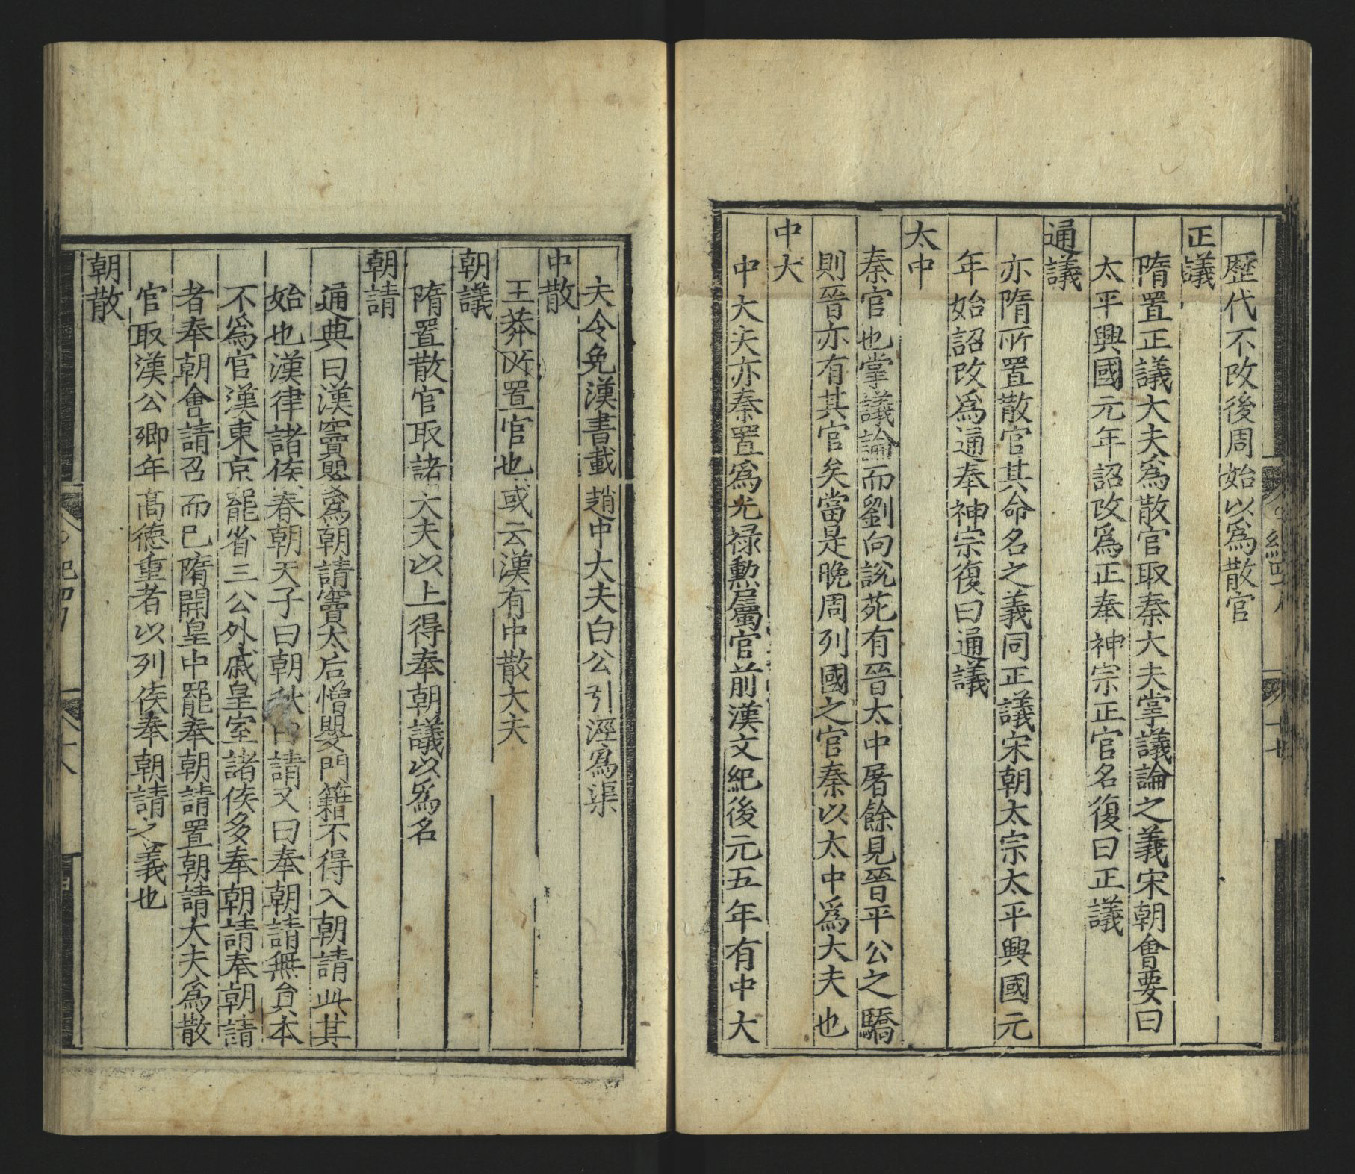 歷代不改後周始以爲散官
正議
隋置正議大夫爲散官取秦大夫掌議論之義宋朝會要曰
太平興國元年詔改爲正奉神宗正官名復曰正議
通議
亦隋所置散官其命名之義同正議宋朝太宗太平興國元
年始詔改爲通奉神宗復曰通議
太中
秦官也掌議論而劉向說苑有晉太中屠餘見晉平公之驕
則晉亦有其官矣當是晚周列國之官秦以太中爲大夫也
中大
中大夫亦秦置爲光禄勳屬官前漢文紀後元五年有中大
夫令免漢書載趙中大夫白公引涇爲渠
中散
王莽所置官也或云漢有中散大夫
朝議
隋置散官取諸大夫以上得奉朝議以爲名
朝請
通典曰漢竇嬰爲朝請竇太后憎嬰門籍不得入朝請此其
始也漢律諸侯春朝天子曰朝秋曰請又曰奉朝請無負本
不爲官漢東京罷省三公外戚皇室諸侯多奉朝請奉朝請
者奉朝會請召而已隋開皇中罷奉朝請置朝請大夫爲散
官取漢公卿年高德重者以列侯奉朝請之義也
朝散